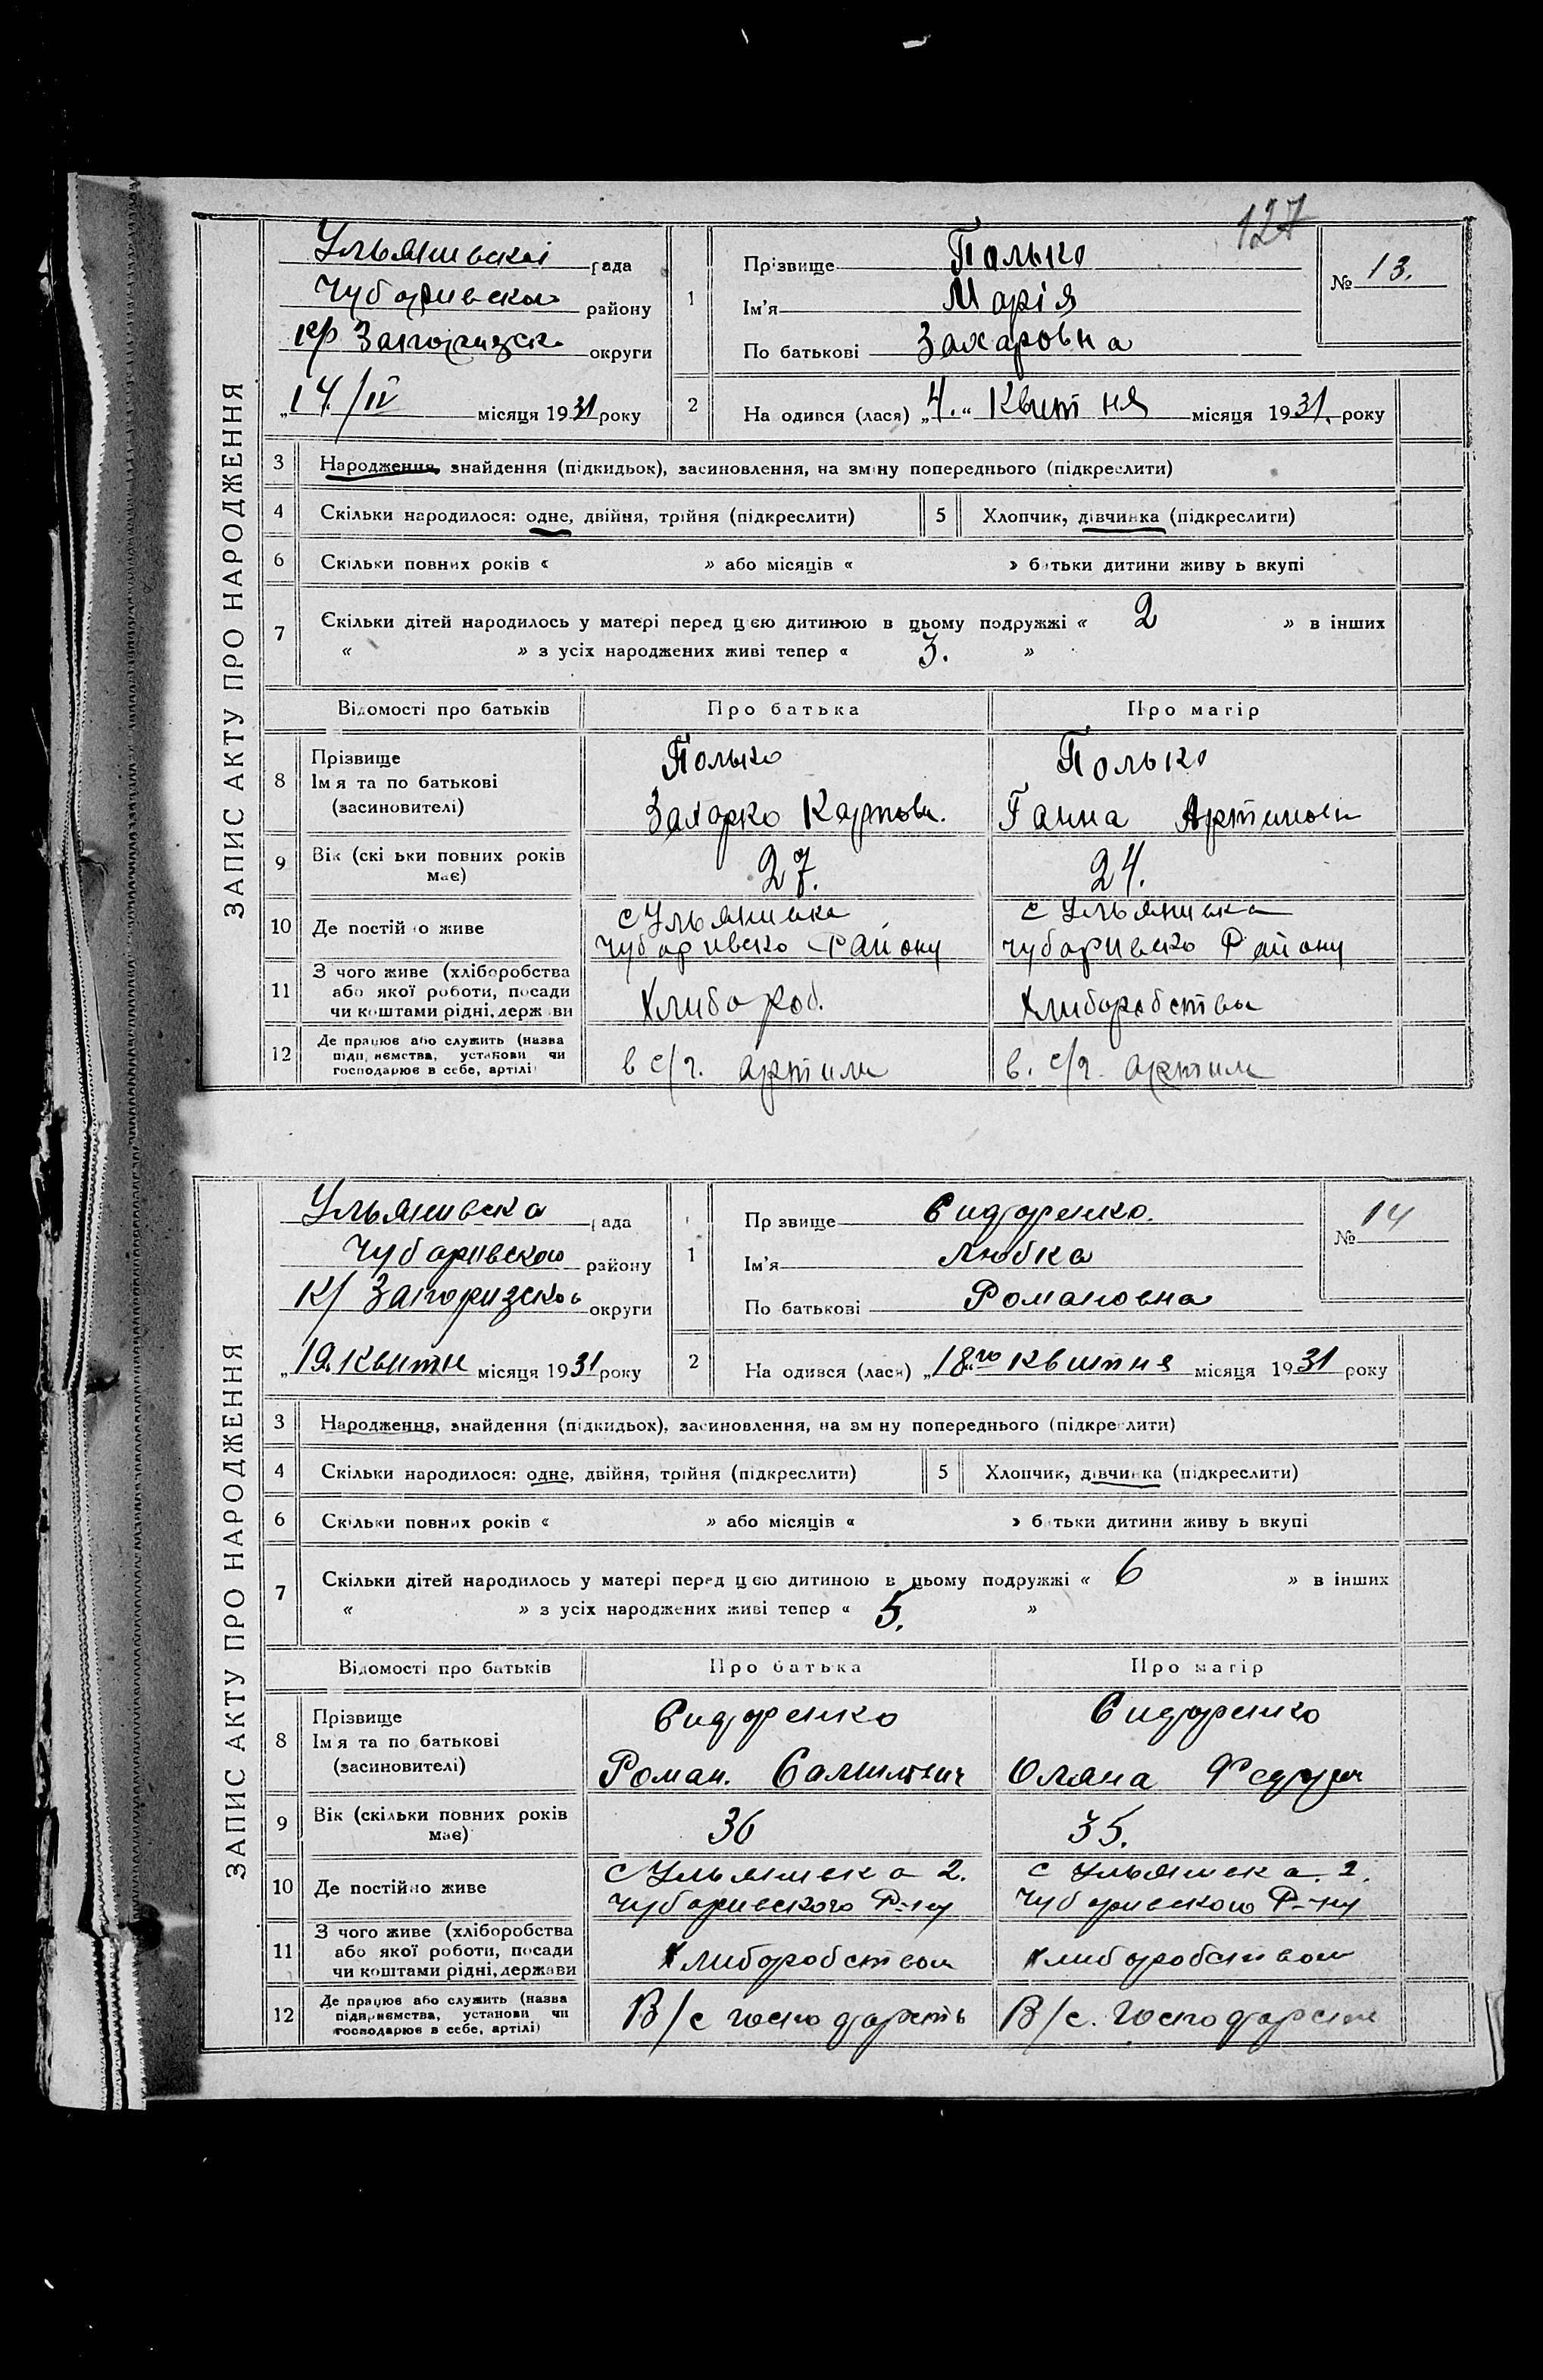 127
ЗАПИС АКТУ ПРО НАРОДЖЕННЯ
Ульянивскої рада
Чубаривскои району
кр Запоризск округи
„14/IV місяця 1931 року
1 Прізвище Полько
Ім'я Марія
По батькові Захаровна
№ 13.
2 На одився (лася) „4.“ Квитня місяця 1931. року
3 Народження, знайдення (підкидьок), засиновлення, на зміну попереднього (підкреслити)
4 Скільки народилося: одне, двійня, трійня (підкреслити) 5 Хлопчик, дівчинка (підкреслити)
6 Скільки повних років « » або місяців « » батьки дитини живу ь вкупі
7 Скільки дітей народилось у матері перед цією дитиною в цьому подружжі « 2 » в інших
« » з усіх народжених живі тепер « 3. »
Відомості про батьків Про батька Про матір
8 Прізвище Полько Полько
Ім'я та по батькові
(засиновителі) Захарко Карпов. Ганна Артимови
9 Вік (скі ьки повних років має) 27. 24.
10 Де постій о живе с Ульянивка с Ульянивка
Чубаривско Району Чубаривско Району
11 З чого живе (хліборобства
або якої роботи, посади
чи коштами рідні, держ ви Хлибороб. Хлиборобства
12 Де працює або служить (назва
підп иємства, установи чи
господарює в себе, артілі) в с/г. артили в. с/г. артили
ЗАПИС АКТУ ПРО НАРОДЖЕННЯ
Ульянивска рада
Чубаривскои району
К/ Запоризскои округи
„19. Квитн місяця 1931 року
1 Пр звище Сидоренко.
Ім'я Любка
По батькові Романовна
№ 14
2 На одився (лася) „18го квитня місяця 1931 року
3 Народження, знайдення (підкидьох), засиновлення, на зм ну попереднього (підкреслити)
4 Скільки народилося: одне, двійня, трійня (підкреслити) 5 Хлопчик, дівчинка (підкреслити)
6 Скільки повних років « » або місяців « » батьки дитини живу ь вкупі
7 Скільки дітей народилось у матері перед цією дитиною в цьому подружжі « 6 » в інших
« » з усіх народжених живі тепер « 5. »
Відомості про батьків Про батька Про матір
8 Прізвище Сидоренко Сидоренко
Ім'я та по батькові
(засиновителі) Роман. Оляна
9 Вік (скільки повних років має) 36 35.
10 Де постійно живе с Ульянивка 2. с Ульянивка. 2.
Чубаривского Р-ну Чубаривского Р-ну
11 З чого живе (хліборобства
або якої роботи, посади
чи коштами рідні, держави Хлиборобством хлиборобством
12 Де працює або служить (назва
підприємства, установи чи
господарює в себе, артілі) В/с господарсть В/с. Господарств